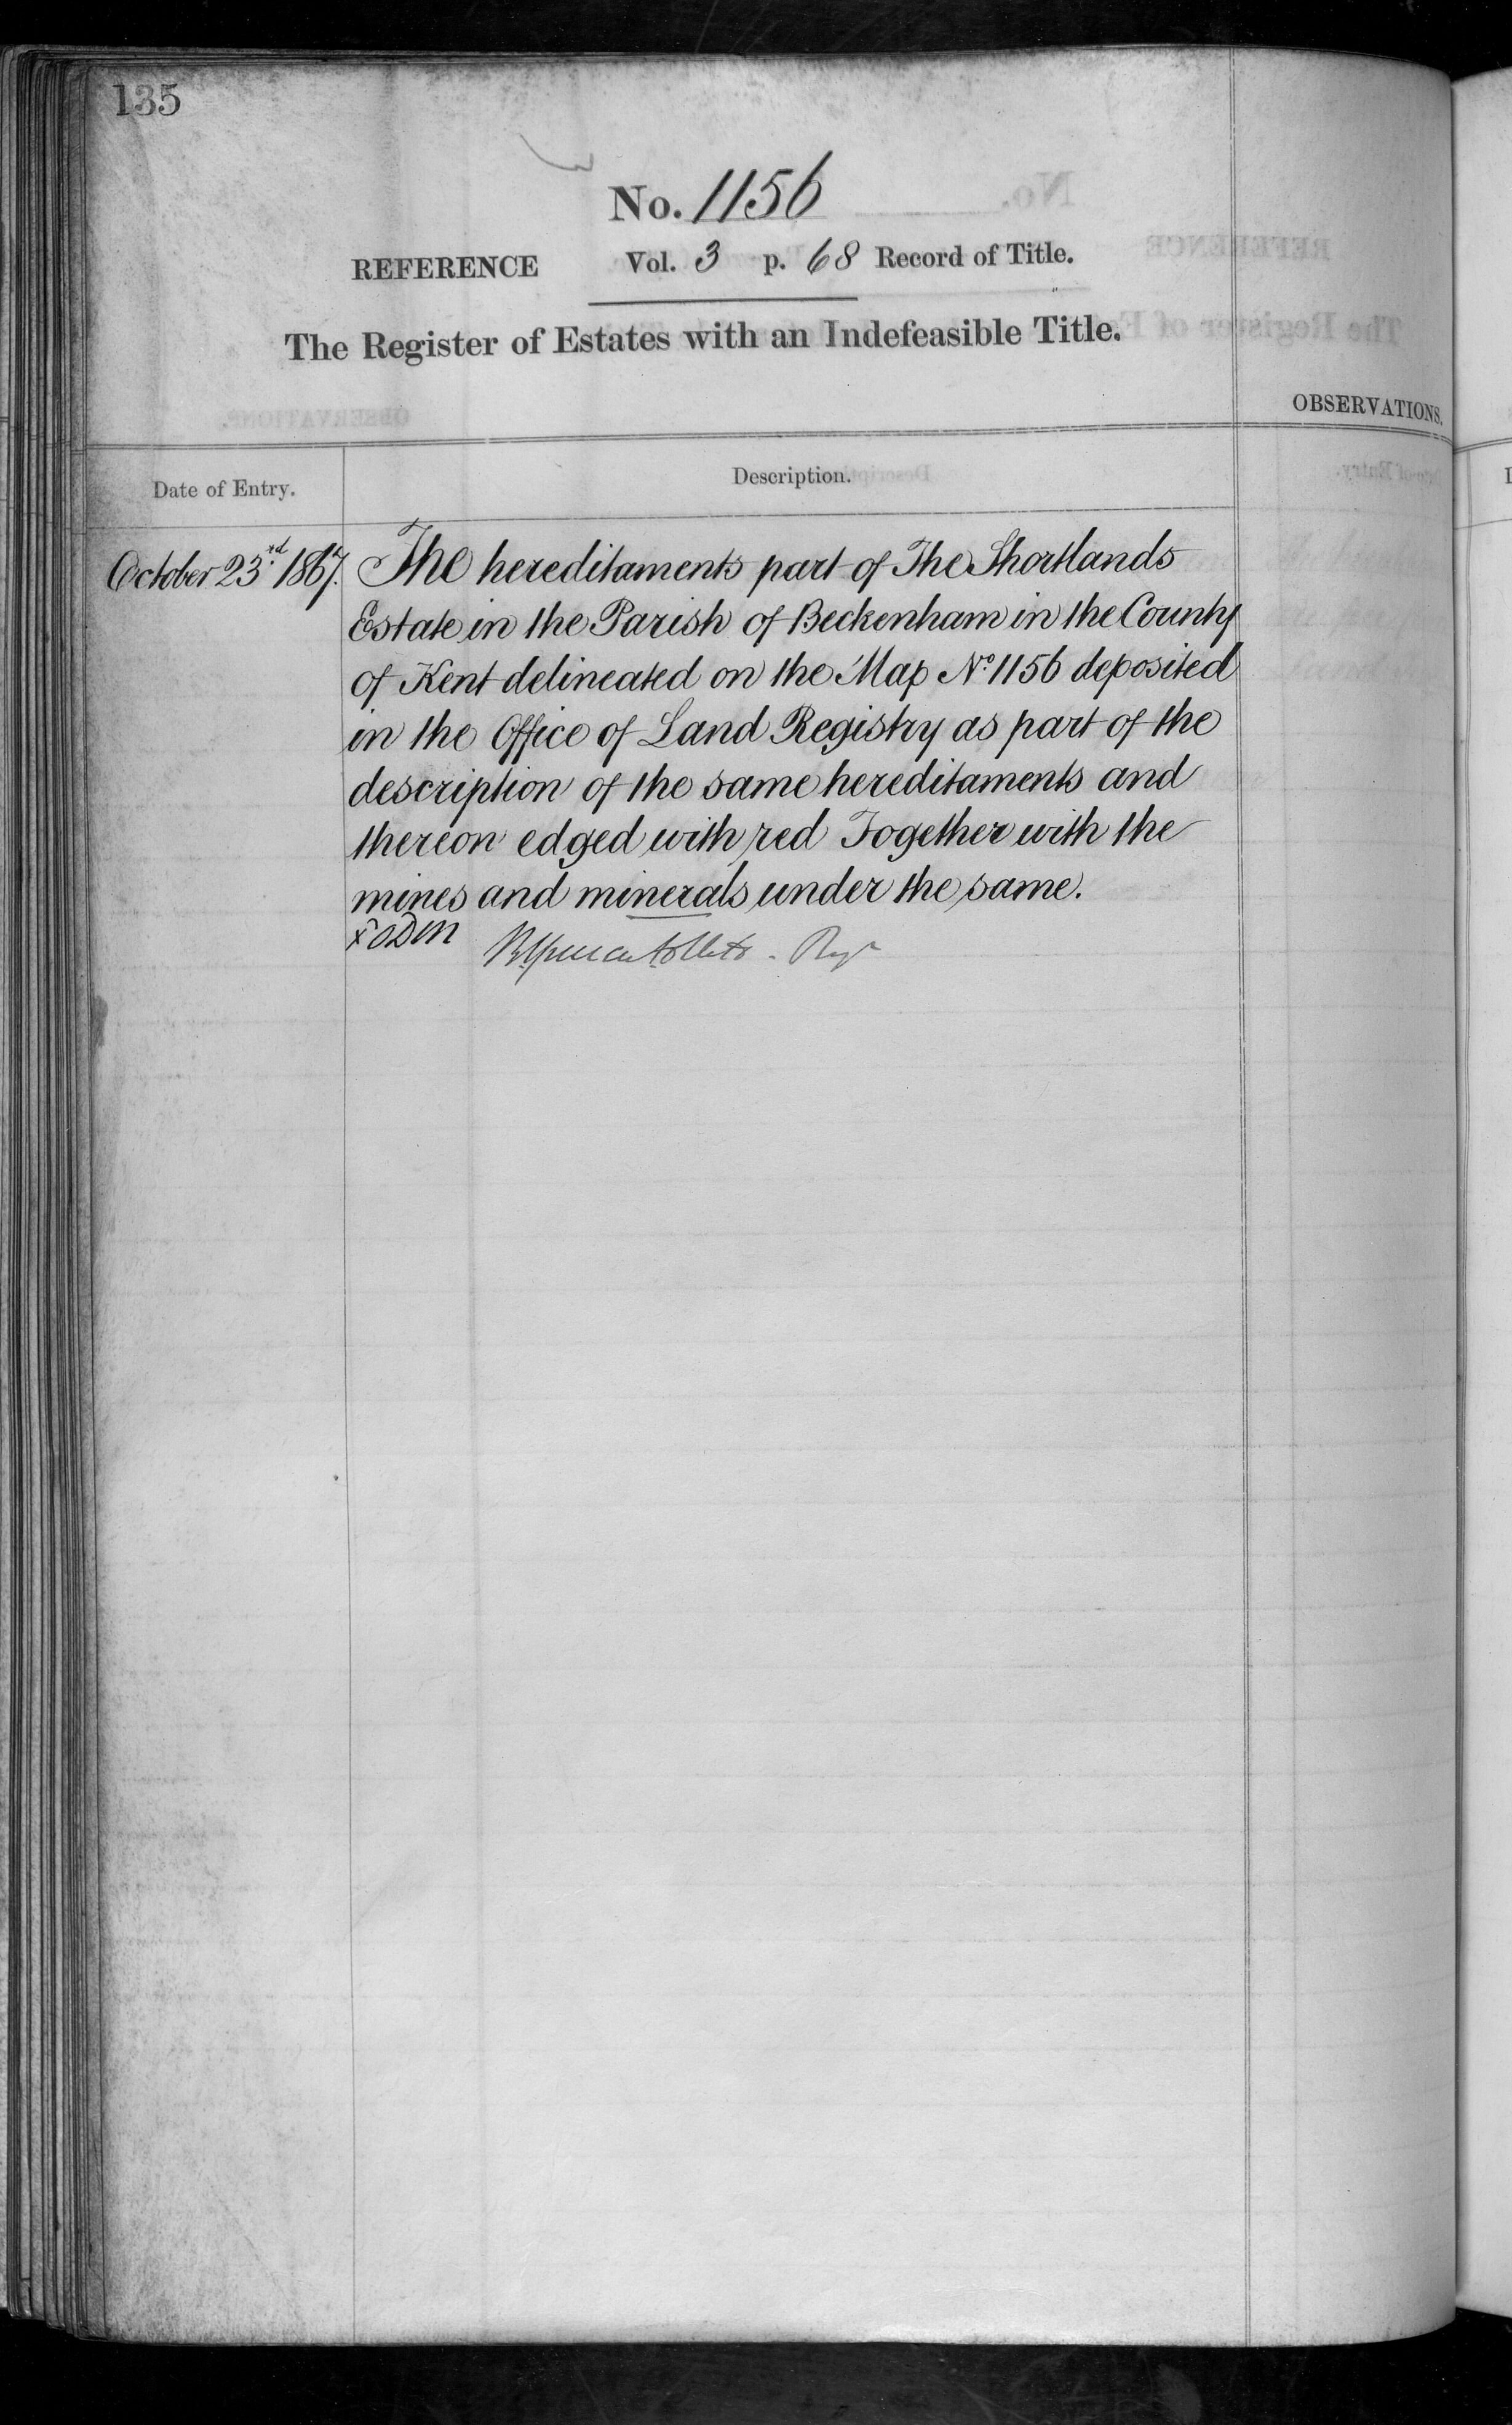 135
No. 1156
REFERENCE Vol. 3 p. 68 Record of Title.
The Register of Estates with an Indefeasible Title.
OBSERVATIONS.
Date of Entry. Description.
October 23rd 1867. The hereditaments part of The Shortlands
Estate in the Parish of Beckenham in the County
of Kent delineated on the Map No. 1156 deposited
in the Office of Land Registry as part of the
description of the same hereditaments and
thereon edged with red Together with the
mines and minerals under the same.
Regr